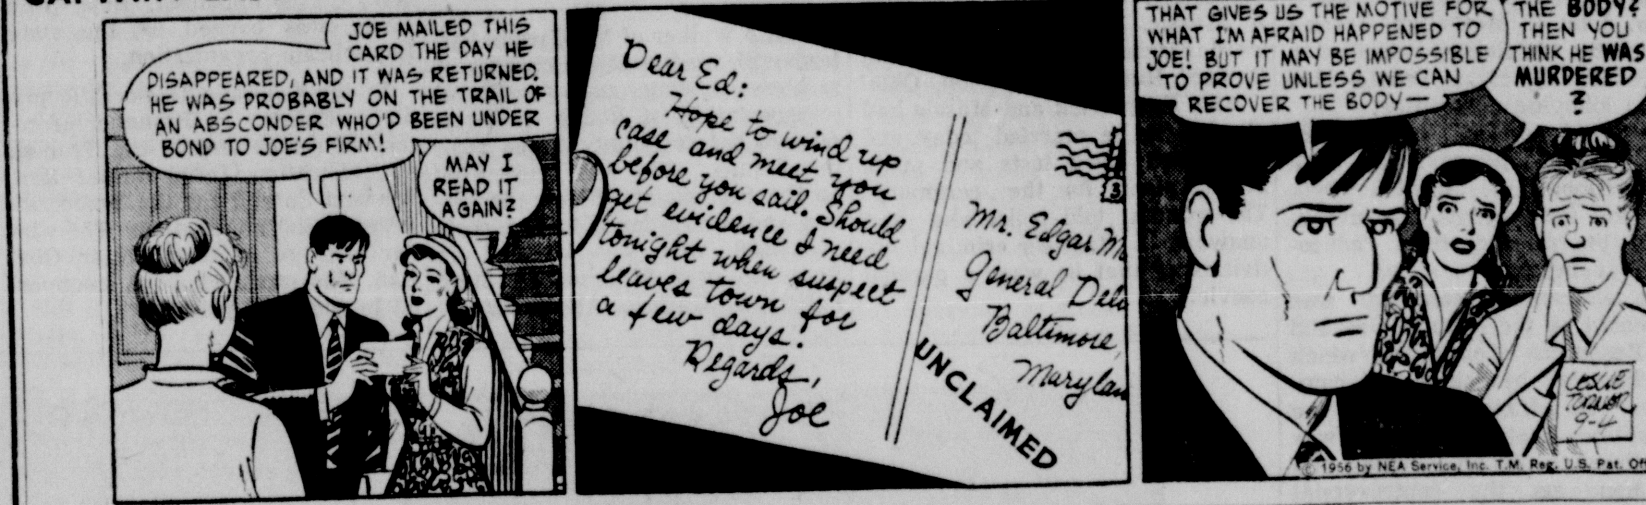 JOE MAILED THIS
CARD THE DAY HE
DISAPPEARED, AND IT WAS RETURNED.
HE WAS PROBABLY ON THE TRAIL OF
AN ABSCONDER WHO'D BEEN UNDER
BOND TO JOE'S FIRM!
MAY I
READ IT
AGAIN?
Dear Ed:
Hope to wind up
case and meet you
before you sail. Should
get evidence I need
tonight when suspect
leaves town for
a few days!
Regards,
Joe
3
Mr. Edgar M
General Del
Baltimore,
Marylan
UNCLAIMED
THAT GIVES US THE MOTIVE FOR
WHAT I'M AFRAID HAPPENED TO
JOE! BUT IT MAY BE IMPOSSIBLE
TO PROVE UNLESS WE CAN
RECOVER THE BODY—
THE BODY?
THEN YOU
THINK HE WAS
MURDERED
?
LESLIE
TURNER
9-4
© 1956 by NEA Service, Inc. T.M. Reg. U.S. Pat. Off